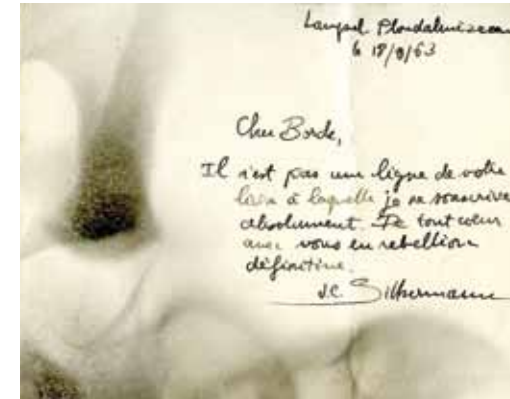 Lampaul Ploudalmézeau
le 18/9/63
Cher Borde,
Il n'est pas une ligne de votre
livre à laquelle je ne souscrive
absolument. De tout cœur
avec vous en rebellion
définitive.
J.C. Silbermann